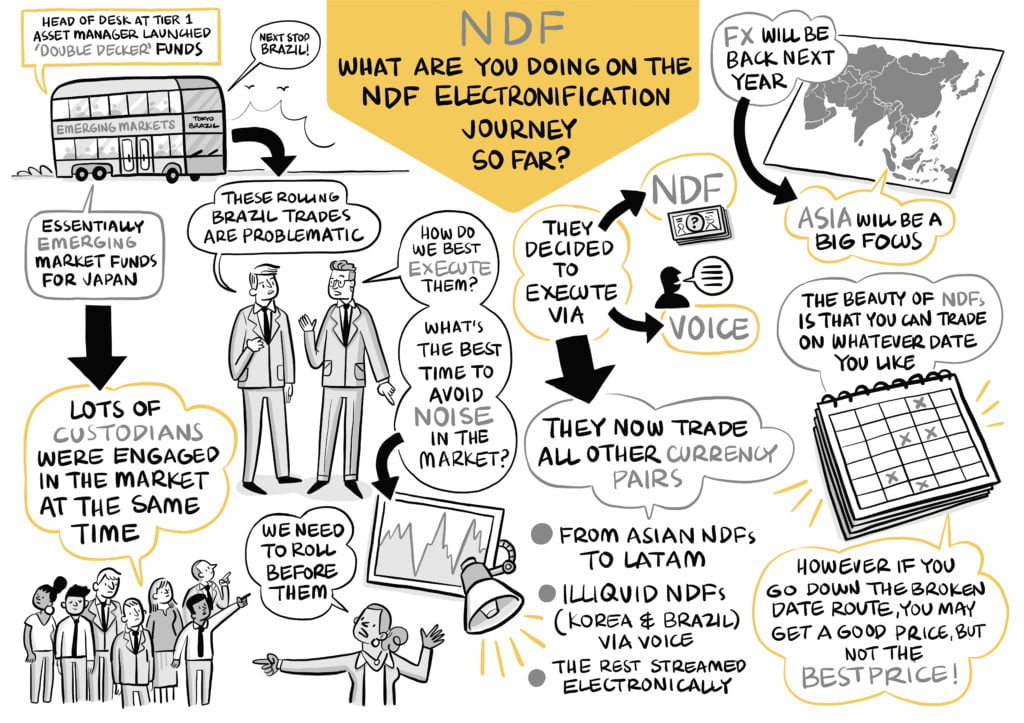 NDF
WHAT ARE YOU DOING ON THE
NDF ELECTRONIFICATION
JOURNEY
SO FAR?
HEAD OF DESK AT TIER 1
ASSET MANAGER LAUNCHED
'DOUBLE DECKER' FUNDS
NEXT STOP
BRAZIL!
EMERGING MARKETS
TOKYO
BRAZIL
ESSENTIALLY
EMERGING
MARKET FUNDS
FOR JAPAN
LOTS OF
CUSTODIANS
WERE ENGAGED
IN THE MARKET
AT THE SAME
TIME
THESE ROLLING
BRAZIL TRADES
ARE PROBLEMATIC
HOW DO
WE BEST
EXECUTE
THEM?
WHAT'S
THE BEST
TIME TO
AVOID
NOISE
IN THE
MARKET?
WE NEED
TO ROLL
BEFORE
THEM
THEY
DECIDED
TO
EXECUTE
VIA
NDF
?
VOICE
THEY NOW TRADE
ALL OTHER CURRENCY
PAIRS
FROM ASIAN NDFs
TO LATAM
ILLIQUID NDFs
(KOREA & BRAZIL)
VIA VOICE
THE REST STREAMED
ELECTRONICALLY
FX WILL BE
BACK NEXT
YEAR
ASIA WILL BE A
BIG FOCUS
THE BEAUTY OF NDFs
IS THAT YOU CAN TRADE
ON WHATEVER DATE
YOU LIKE
X
X X
X
X
HOWEVER IF YOU
GO DOWN THE BROKEN
DATE ROUTE, YOU MAY
GET A GOOD PRICE, BUT
NOT THE
BEST PRICE!